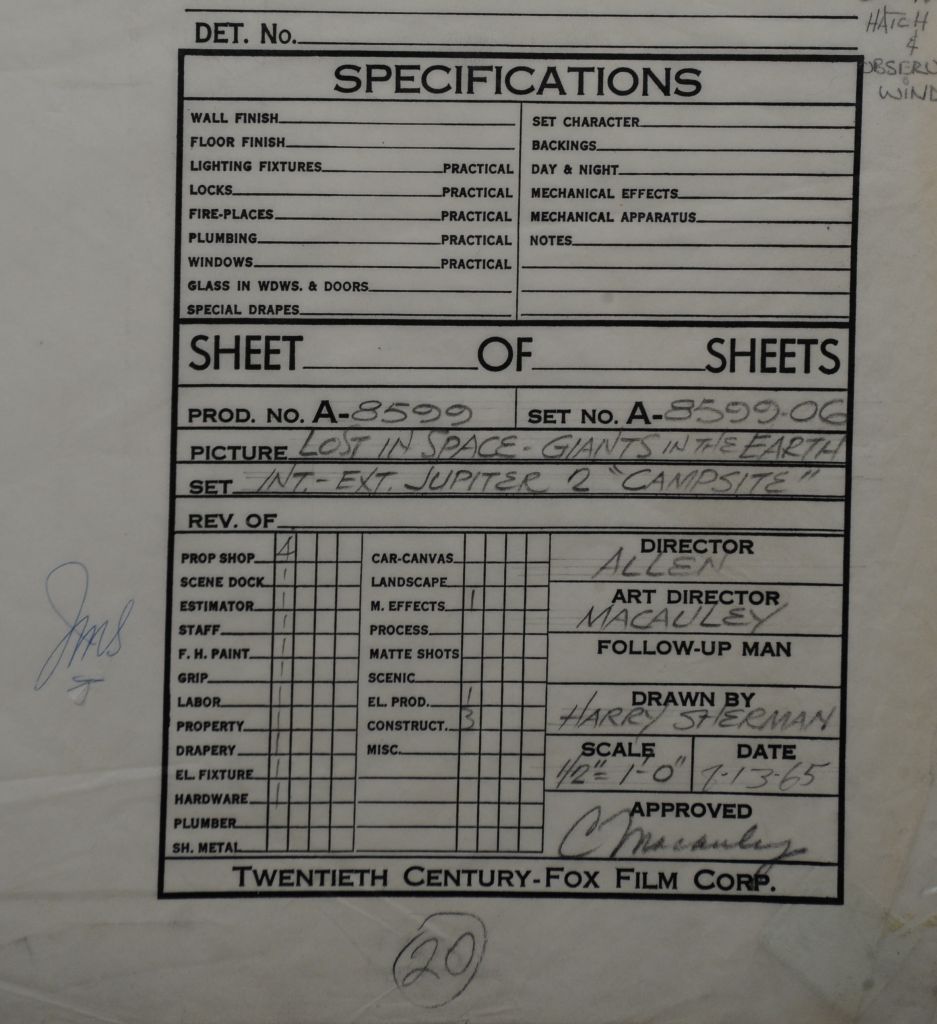 HATCH
&
WIND
DET. No.
SPECIFICATIONS
WALL FINISH
FLOOR FINISH
LIGHTING FIXTURES PRACTICAL
LOCKS PRACTICAL
FIRE-PLACES PRACTICAL
PLUMBING PRACTICAL
WINDOWS PRACTICAL
GLASS IN WDWS. & DOORS
SPECIAL DRAPES
SET CHARACTER
BACKINGS
DAY & NIGHT
MECHANICAL EFFECTS
MECHANICAL APPARATUS
NOTES
SHEET OF SHEETS
PROD. NO. A-8599 SET NO. A-8599-06
PICTURE LOST IN SPACE - GIANTS IN THE EARTH
SET INT.-EXT. JUPITER 2 "CAMPSITE"
REV. OF
PROP SHOP 4
SCENE DOCK 1
ESTIMATOR 1
STAFF 1
F. H. PAINT 1
GRIP 1
LABOR 1
PROPERTY 1
DRAPERY 1
EL. FIXTURE 1
HARDWARE 1
PLUMBER
SH. METAL
CAR-CANVAS
LANDSCAPE
M. EFFECTS 1
PROCESS
MATTE SHOTS
SCENIC
EL. PROD. 1
CONSTRUCT. 3
MISC.
DIRECTOR
ALLEN
ART DIRECTOR
MACAULEY
FOLLOW-UP MAN
DRAWN BY
HARRY SHERMAN
SCALE
1/2" = 1'-0"
DATE
7-13-65
APPROVED
C Macauley
TWENTIETH CENTURY-FOX FILM CORP.
Jms
20